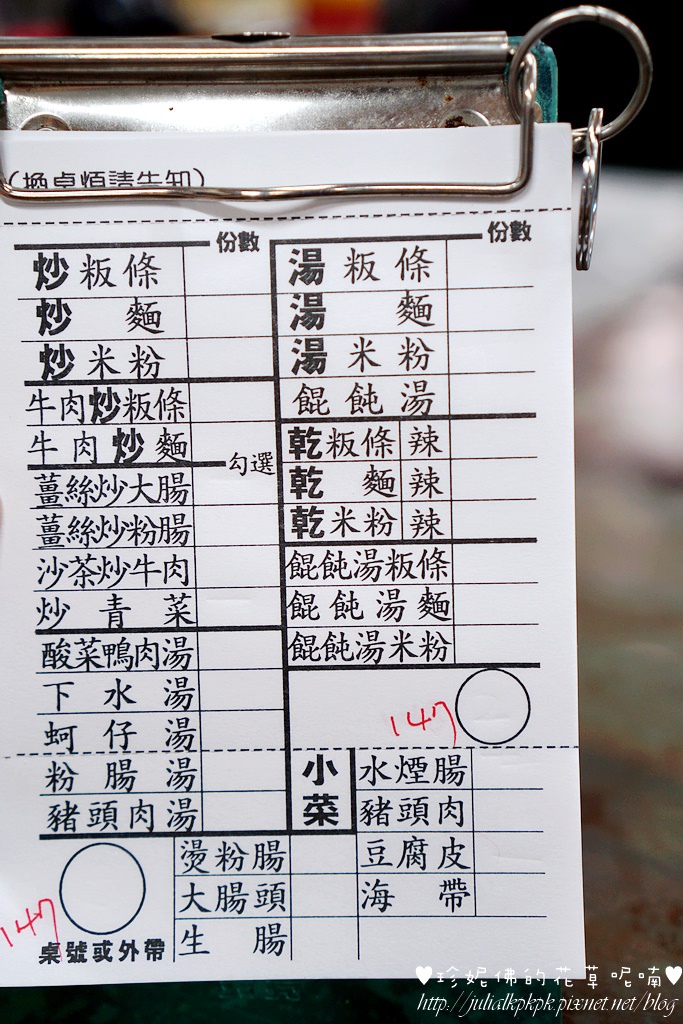 (換桌煩請告知)
份數
炒粄條
炒麵
炒米粉
牛肉炒粄條
牛肉炒麵
勾選
薑絲炒大腸
薑絲炒粉腸
沙茶炒牛肉
炒青菜
酸菜鴨肉湯
下水湯
蚵仔湯
粉腸湯
豬頭肉湯
份數
湯粄條
湯麵
湯米粉
餛飩湯
乾粄條 辣
乾麵 辣
乾米粉 辣
餛飩湯粄條
餛飩湯麵
餛飩湯米粉
147
小菜
水煙腸
豬頭肉
豆腐皮
海帶
燙粉腸
大腸頭
生腸
147
桌號或外帶
♥珍妮佛的花草呢喃♥
http://julialkpkpk.pixnet.net/blog